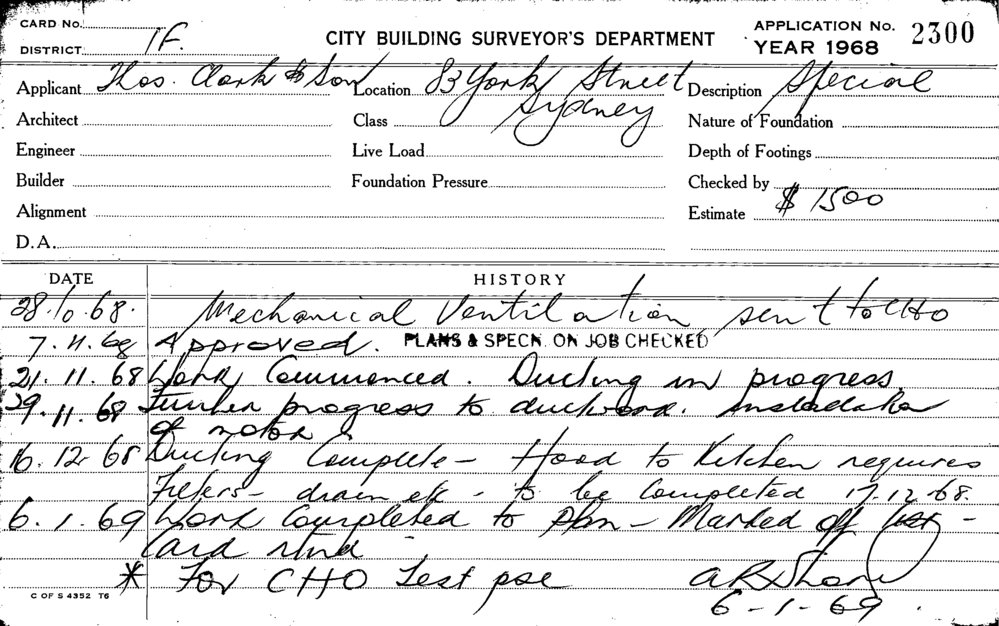 CARD No.
DISTRICT. 1F.
CITY BUILDING SURVEYOR'S DEPARTMENT
APPLICATION No. 2300
YEAR 1968
Applicant Thos. Clark & Son Location 83 York Street Description Special
Sydney
Architect Class Nature of Foundation
Engineer Live Load Depth of Footings
Builder Foundation Pressure Checked by
Alignment Estimate $ 1500
D.A.
DATE HISTORY
28.10.68. Mechanical Ventilation sent to CHO
7.11.68 Approved. PLANS & SPECN. ON JOB CHECKED
21.11.68 Work Commenced. Ducting in progress
29.11.68 Further progress to ductwork.
of motor
16.12.68 Ducting Complete - Hood to Kitchen requires
Filters - drain etc - to be Completed 17.12.68.
6.1.69 Work Completed to plan - Marked off -
Card
* For CHO Test pse
6-1-69.
C OF S 4352 T6